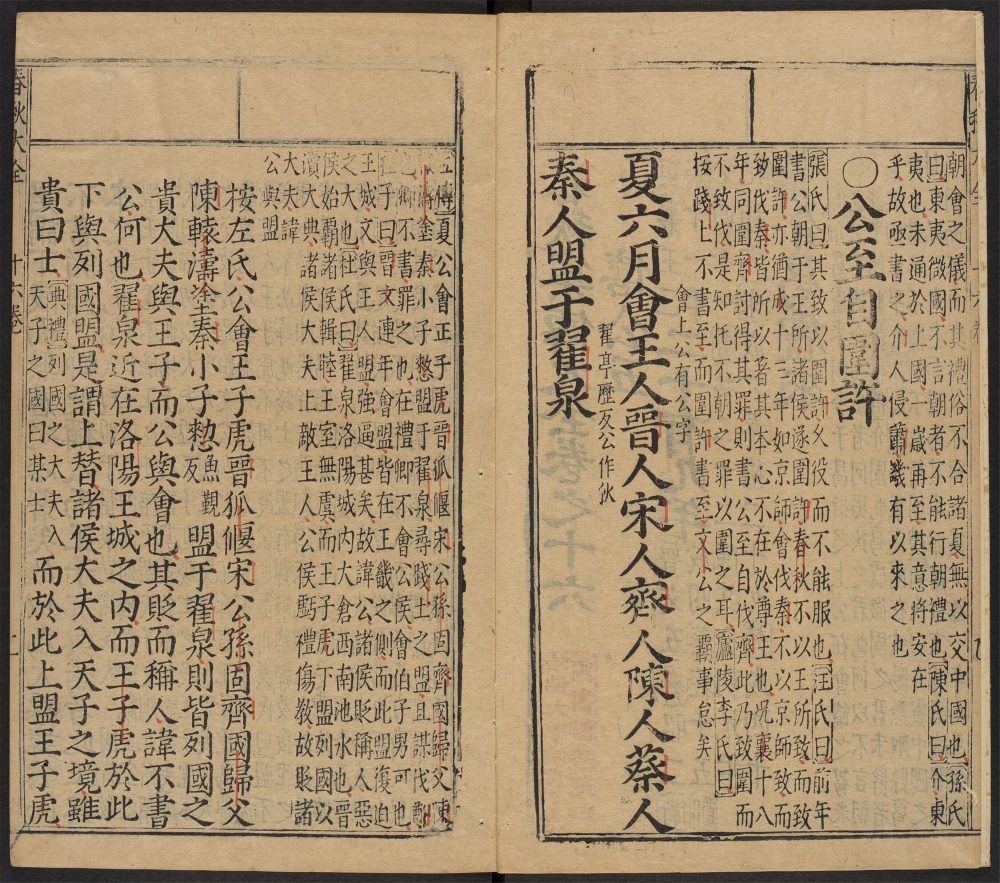 朝會之儀而其禮俗不合諸夏無以交中國也孫氏
曰東夷微國不言朝者不能行朝禮也陳氏曰介東
夷也未通於上國一歲再至其意將安在
乎故亟書之介人侵蕭畿有以來之也
〇公至自圍許
張氏曰其致以圍許久役而不能服也汪氏曰前年
書公朝于王所諸侯遂圍許春秋不以王所致而致
圍許亦猶成十三年如京師會伐秦不以京師致而
致伐秦皆所以著其本心不在於尊王也況襄十八
年同圍齊討得其罪則書公至自伐齊此乃致圍而
不致伐是知托不朝之罪以圍之耳廬陵李氏曰
按踐土不書至而圍許書至文公之霸事怠矣
會上公有公字
夏六月會王人晉人宋人齊人陳人蔡人
翟亭歷反公作狄
秦人盟于翟泉
左傳夏公會王子虎晉狐偃宋公孫固齊國歸父陳
轅濤塗秦小子憖盟于翟泉尋踐土之盟且謀伐鄭
也卿不書罪之也在禮卿不會公侯會伯子男可也
王城文與王人盟強逼甚矣故諱公諸侯貶稱人惡
之大也杜氏曰翟泉洛陽城內大倉西南池水也晉
侯始霸諸侯輯睦王室無虞而王子虎下盟列國以
瀆大典諸侯大夫上敵王人公侯虧禮傷教故貶諸
大夫諱
公與盟
按左氏公會王子虎晉狐偃宋公孫固齊國歸父
陳轅濤塗秦小子憖魚覲反盟于翟泉則皆列國之
貴大夫與王子而公與會也其貶而稱人諱不書
公何也翟泉近在洛陽王城之內而王子虎於此
下與列國盟是謂上替諸侯大夫入天子之境雖
貴曰士典禮列國之大夫入天子之國曰某士而於此上盟王子虎
春秋大全
十六卷